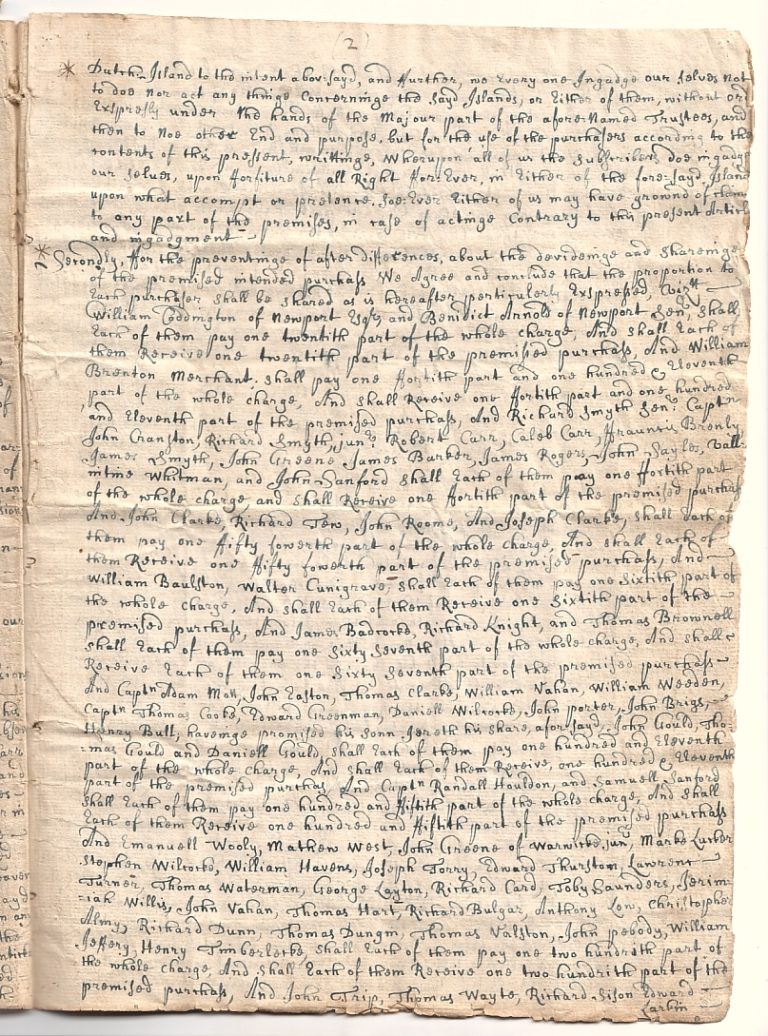 (2)
* Dutch Island to the intent abov:sayd, and ffurther, we Every one Ingadge our selves not
to doe nor act any thinge Concerninge the sayd Islands, or Either of them, without ord
Exspresly under the hands of the Majour part of the afore:Named Trustees, and
then to Noe other End and purpose, but for the use of the purchasers according to the
contents of this pressent, writtinge, Wherupon all of us the subscribers doe ingadge
our selves, upon fforfiture of all Right ffor:Ever, in Either of the fore:sayd, Island
upon what accompt or pretence. soe:Ever Either of us may have ground of claim
to any part of the premises, in case of actinge Contrary to this present Articl
and ingadgment
* Secondly, ffor the preventinge of after differences, about the devideinge and shareinge
of the premised intended purchass We Agree and conclude that the proportion to
Each purchaser shall be shared as is hereafter perticulerly Exspressed, Vizt
William Coddington of Newport Esqr and Benidict Arnold of Newport Senr, shall
Each of them pay one twentith part of the whole charge, And shall Each of
them Receive one twentith part of the premised purchass, And William
Brenton Merchant. shall pay one ffortith part and one hundred & Eleventh
part of the whole charge, And shall Receive one ffortith part and one hundred
and Eleventh part of the premised purchass, And Richard Smyth Senr. Captn
John Cranston, Richard Smyth, junr. Robert Carr, Caleb Carr, ffrauncis Brenly
James Smyth, John Greene James Barker, James Rogers, John Sayles, Vall=
intine Whitman, and John Sanford shall Each of them pay one ffortith part
of the whole charge and shall Receive one ffortith part of the premised purchass
And John Clarke, Richard Tew, John Roome, And Joseph Clarke, shall Each of
them pay one ffifty fowerth part of the whole charge, And shall Each of
them Receive one ffifty fowerth part of the premised purchass, And
William Baulston, Walter Cunigrave, shall Each of them pay one Sixtith part of
the whole charge, And shall Each of them Receive one Sixtith part of the
premised purchass, And James Badcocke, Richard Knight, and Thomas Brownell
shall Each of them pay one Sixty Seventh part of the whole charge, And shall
Receive Each of them one Sixty Seventh part of the premised purchass
And Captn Adam Mott, John Easton, Thomas Clarke, William Vahan, William Weeden,
Captn Thomas Cooke, Edward Greenman, Daniell Wilcocke, John porter, John Brigs,
Henry Bull, haveinge promised his sonn Jereth his share, afor:sayd, John Gould, Tho
=mas Gould and Daniell Gould, shall Each of them pay one hundred and Eleventh
part of the whole charge, And shall Each of them Receive, one hundred & Eleventh
part of the premised purchas, And Captn Randall Houldon, and Samuell Sanford
shall Each of them pay one hundred and ffiftith part of the whole charge, And shall
Each of them Receive one hundred and ffiftith part of the premised purchass
And Emanuell Wooly, Mathew West, John Greene of Warwicke, jun, Marke Lucker
Stephen Wilcocke, William Havens, Joseph Torry, Edward Thurston, Lawrenc
Turner, Thomas Waterman, George Layton, Richard Card, Toby Saunders, Jerim=
=iah Willis, John Vahan, Thomas Hart, Richard Bulgar, Anthony Low, Christopher
Almy, Richard Dunn, Thomas Dungin, Thomas Valston, John pebody, William
Jeffery, Henry Timberlecke, shall Each of them pay one two hundrith part of
the whole charge, And shall Each of them Receive one two hundrith part of the
premised purchass, And John Trip, Thomas Wayte, Richard Sison Edward
Larkin